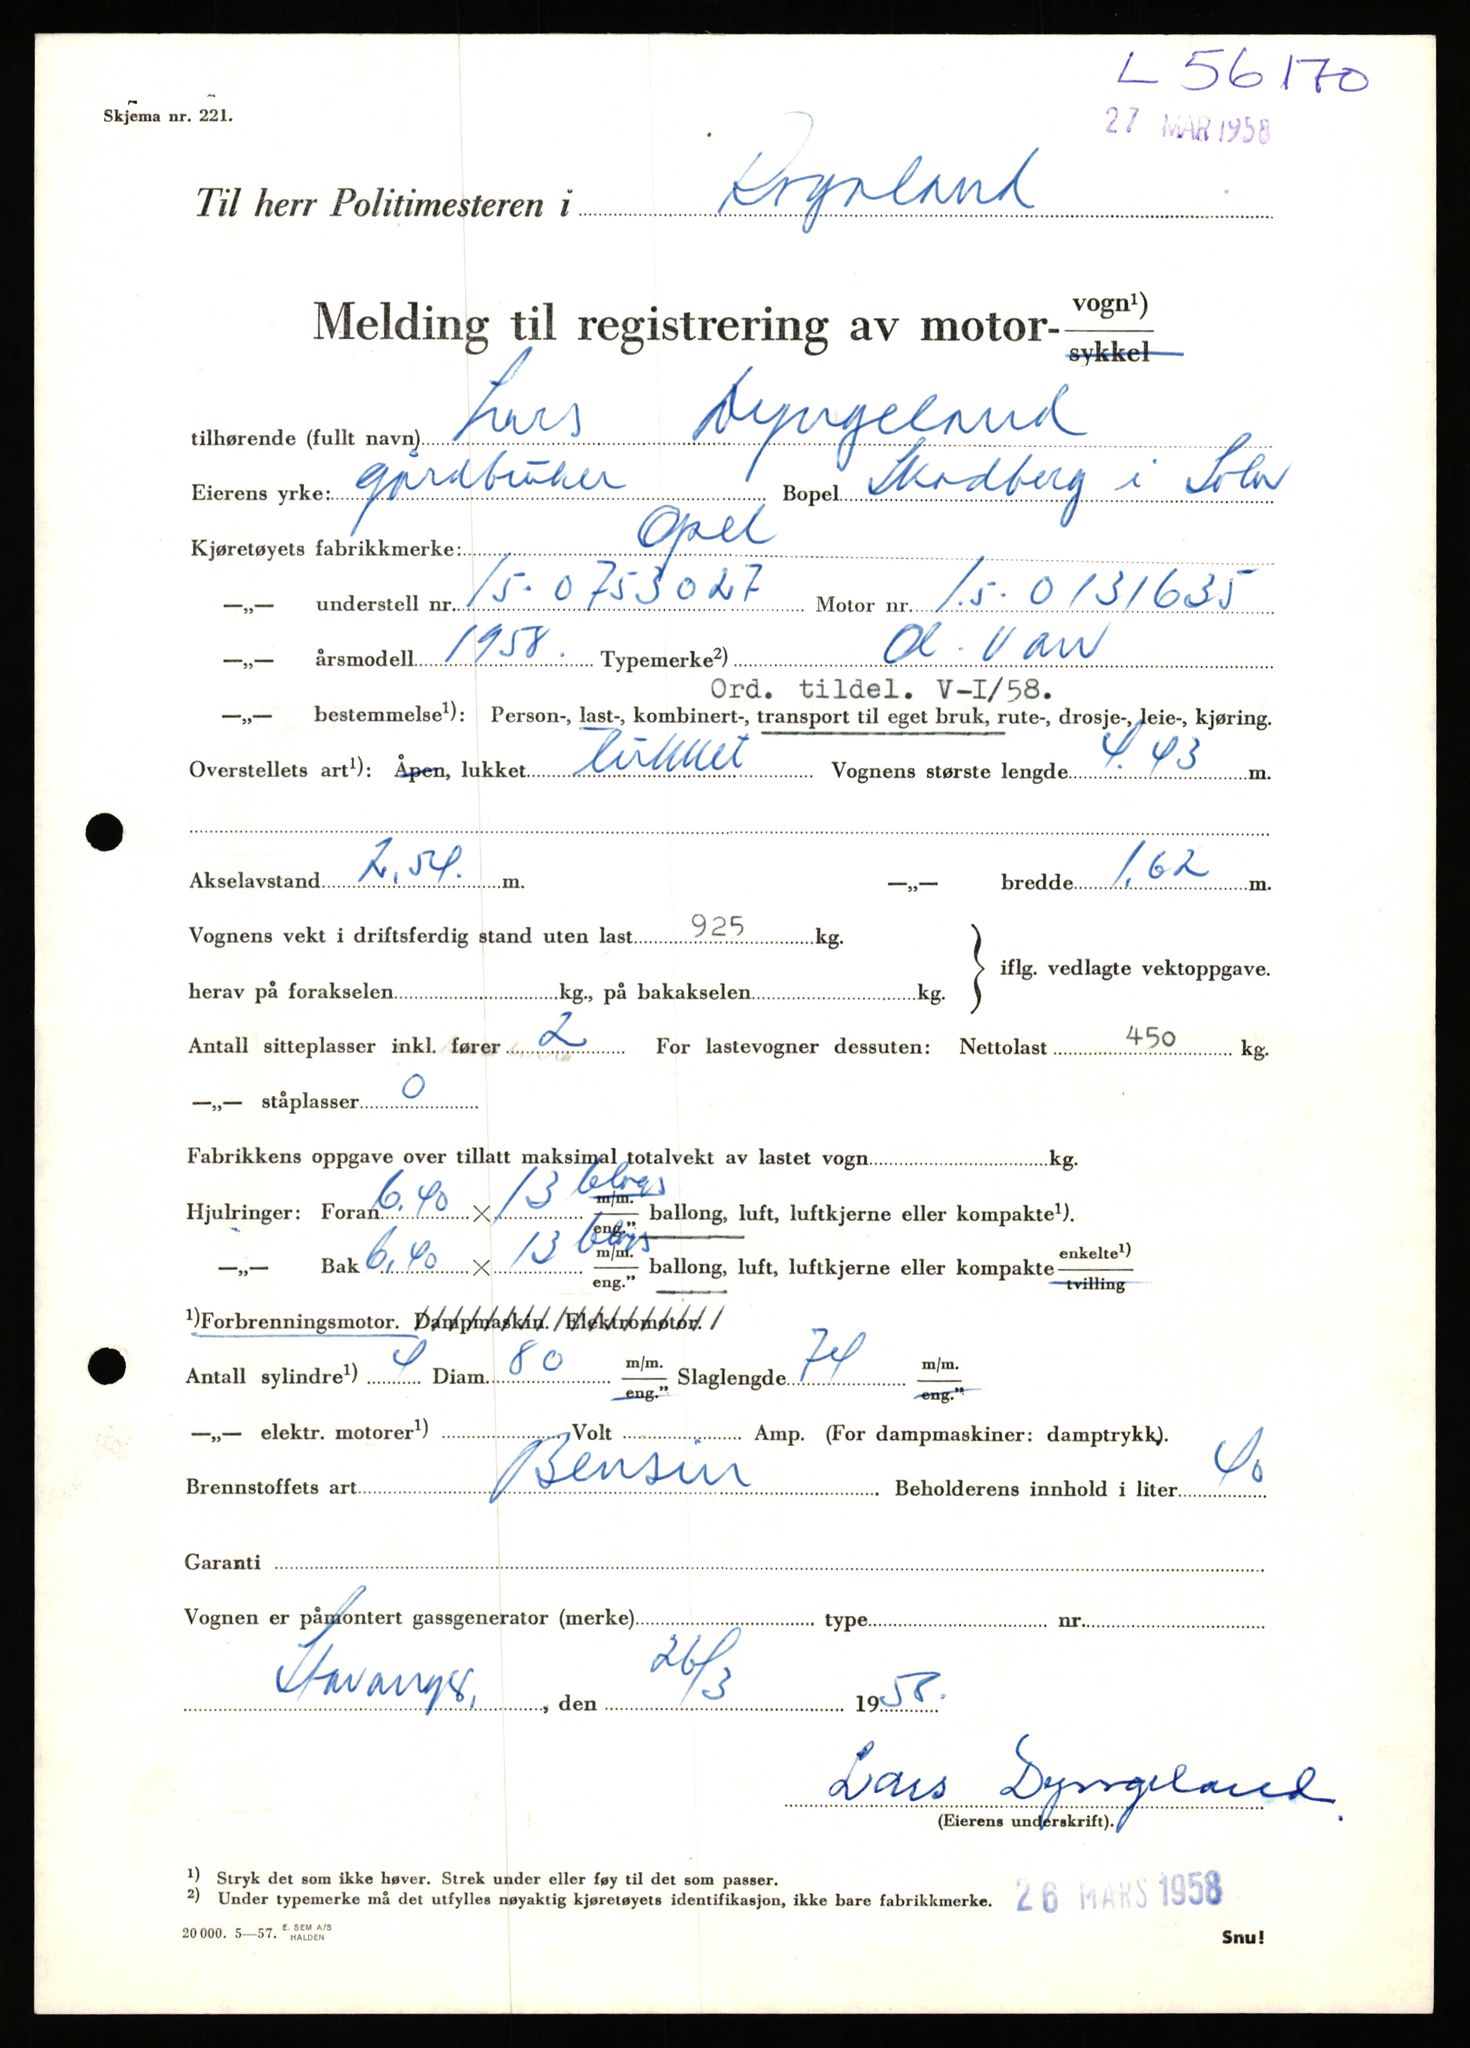 L 56170
Skjema nr. 221.
27 MAR 1958
Til herr Politimesteren i Rogaland
Melding til registrering av motor- vogn¹)
sykkel
tilhørende (fullt navn) Lars Dyngeland
Eierens yrke: gårdbruker Bopel Skadberg i Sola
Kjøretøyets fabrikkmerke: Opel
—„— understell nr. 15-0753027 Motor nr. 1.5-0131635
—„— årsmodell 1958. Typemerke²) Ol. Van
Ord. tildel. V-I/58.
—„— bestemmelse¹): Person-, last-, kombinert-, transport til eget bruk, rute-, drosje-, leie-, kjøring.
Overstellets art¹): Åpen, lukket lukket Vognens største lengde 4.43 m.
Akselavstand 2,54. m. —„— bredde 1,62 m.
Vognens vekt i driftsferdig stand uten last 925 kg.
iflg. vedlagte vektoppgave.
herav på forakselen kg., på bakakselen kg.
Antall sitteplasser inkl. fører 2 For lastevogner dessuten: Nettolast 450 kg.
—„— ståplasser 0
Fabrikkens oppgave over tillatt maksimal totalvekt av lastet vogn kg.
Hjulringer: Foran 6.40 × 13 m/m. eng." ballong, luft, luftkjerne eller kompakte¹).
—„— Bak 6,40 × 13 m/m. eng." ballong, luft, luftkjerne eller kompakte enkelte¹) tvilling
¹)Forbrenningsmotor. Dampmaskin. Elektromotor.
Antall sylindre¹) 4 Diam. 80 m/m. eng." Slaglengde 74 m/m. eng."
—„— elektr. motorer¹) Volt Amp. (For dampmaskiner: damptrykk).
Brennstoffets art Bensin Beholderens innhold i liter 40
Garanti
Vognen er påmontert gassgenerator (merke) type nr.
Stavanger, , den 26/3 1958.
Lars Dyngeland.
(Eierens underskrift).
¹) Stryk det som ikke høver. Strek under eller føy til det som passer.
²) Under typemerke må det utfylles nøyaktig kjøretøyets identifikasjon, ikke bare fabrikkmerke.
26 MARS 1958
20 000. 5—57. E. SEM A/S HALDEN
Snu!